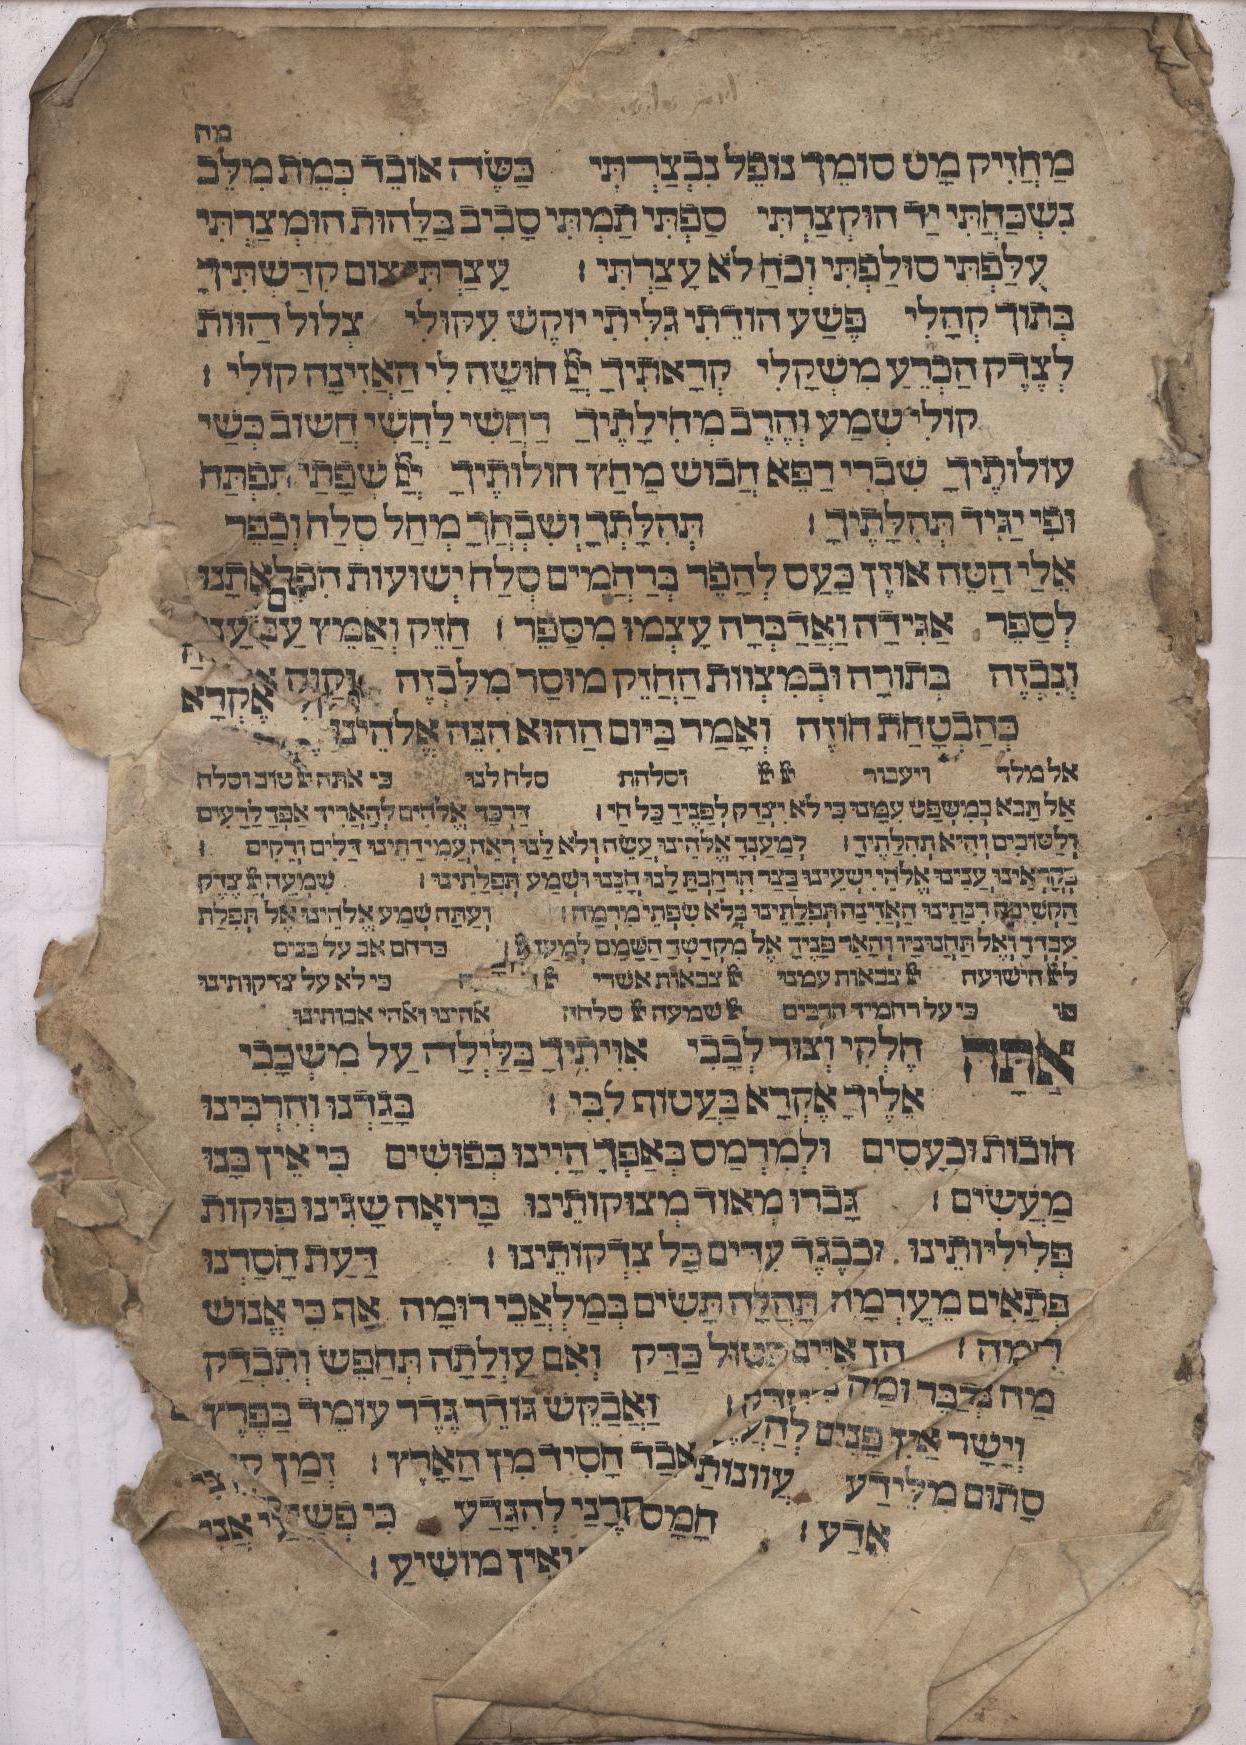 מח
מַחֲזִיק מָט סוֹמֵךְ נוֹפֵל נִבְצַרְתִּי כַּשֶּׂה אוֹבֵד כְּמֵת מִלֵּב
נִשְׁכַּחְתִּי יַד הוּקְצַרְתִּי סַפְתִּי תַמְתִּי סָבִיב בַּלָּהוֹת הוּמְצַרְתִּי
עֻלַּפְתִּי סוּלַפְתִּי וְכֹחַ לֹא עָצַרְתִּי׃ עָצַרְתִּי צום קִדַּשְׁתִּיךָ
בְּתוֹךְ קְהָלִי פֶּשַׁע הוֹדֵתִי גִלִּיתִי יוֹקֶשׁ עִקּוּלִי צְלוֹל הַוּוֹת
לְצֶדֶק הַכְרַע מִשְׁקָלִי קְרָאתִיךָ יְיָ חוּשָׁה לִּי הַאֲזִינָה קוֹלִי׃
קוֹלִי שְׁמַע וְהֶרֶב מְחִילָתֶיךָ רַחֲשִׁי לַחֲשִׁי חֲשׁוֹב כְּשַׁי
עוֹלוֹתֶיךָ שִׁבְרִי רַפֵּא חֲבוֹשׁ מַחַץ חולותֶיךָ יְיָ שְׂפָתַי תִּפְתָּח
וּפִי יַגִּיד תְּהִלָּתֶיךָ׃ תְּהִלָּתְךָ וְשִׁבְחֲךָ מְחַל סְלַח וְכַפֵּר
אֵלַי הַטֵּה אוֹזֶן כַּעַס לְהָפֵר בְּרַחֲמִים סְלַח יְשׁוּעוֹת
לְסַפֵּר אַגִּידָה וַאֲדַבְּרָה עָצְמוּ מִסַּפֵּר׃ חַזֵּק וְאַמֵּץ
וְנִבְזֶה בְּתוֹרָה וּבְמִצְווֹת הַחֲזֵק מוּסַר מִלִּבְזֶה
אֶקְרָא
כְּהַבְטָחַת חוֹזֶה וְאָמַר בַּיּוֹם הַהוּא הִנֵּה אֱלֹהֵינוּ
אל מלך ויעבור יי יי וסלחת סלח לנו כי אתה יי טוב וסלח
אַל תָּבֹא בְמִשְׁפָּט עִמָּנוּ כִּי לֹא יִצְדַּק לְפָנֶיךָ כָּל חַי׃ דַּרְכְּךָ אֱלֹהֵינוּ לְהַאֲרִיךְ אַפְּךָ לָרָעִים
וְלַטּוֹבִים וְהִיא תְהִלָּתֶיךָ׃ לְמַעַנְךָ אֱלֹהֵינוּ עֲשֵׂה וְלֹא לָנוּ רְאֵה עֲמִידָתֵינוּ דַּלִּים וְרֵקִים׃
בְּקָרְאֵינוּ עֲנֵינוּ אֱלֹהֵי יִשְׁעֵינוּ בַּצַּר הִרְחַבְתָּ לָנוּ חָנֵּנוּ וּשְׁמַע תְּפִלָּתֵינוּ׃ שִׁמְעָה יְיָ צֶדֶק
הַקְשִׁיבָה רִנָּתֵינוּ הַאֲזִינָה תְּפִלָּתֵינוּ בְּלֹא שִׂפְתֵי מִרְמָה׃ וְעַתָּה שְׁמַע אֱלֹהֵינוּ אֶל תְּפִלַּת
עַבְדְּךָ וְאֶל תַּחֲנוּנָיו וְהָאֵר פָּנֶיךָ אֶל מִקְדָּשְׁךָ הַשָּׁמֵם לְמַעַן יְיָ׃ כרחם אב על בנים
ליי הישועה יי צבאות עמנו יי צבאות אשרי יי כי לא על צדקותינו
כי על רחמיך הרבים יי שמעה יי סלחה אהינו ואהי אבותינו
אַתָּה חֶלְקִי וְצוּר לְבָבִי אִוִּיתִיךָ בַּלַּיְלָה עַל מִשְׁכָּבִי
אֵלֶיךָ אֶקְרָא בַּעֲטוֹף לִבִּי׃ בָּגַדְנוּ וְהִרְבִּינוּ
חוֹבוֹת וּבְעָסִים וּלְמִרְמַס בְּאַפְּךָ הָיִינוּ כְּפוּשִׁים כִּי אֵין בָּנוּ
מַעֲשִׂים׃ גָּבְרוּ מְאוֹד מְצוּקוֹתֵינוּ בָּרוֹאֶה שָׁגִינוּ פּוּקוֹת
פְּלִילִיּוֹתֵינוּ וּכְבֶגֶד עִדִּים כָּל צִדְקוֹתֵינוּ׃ דַּעַת חָסַרְנוּ
פְּתָאִים מֵעָרְמָה תָּהֳלָה תָּשִׂים בְּמַלְאֲכֵי רוּמָה אַף כִּי אֱנוֹשׁ
רִימָה׃ הֵן אִיִּים כַּדַּק וְאִם עַוְלָתָה תְּחַפֵּשׂ וְתִבְדַּק
מַה נְּדַבֵּר וּמַה וַאֲבַקֵּשׁ גּוֹדֵר גֶּדֶר עוֹמֵד בַּפֶּרֶץ
וְיָשָׁר אֵין אָבַד חָסִיד מִן הָאָרֶץ׃ זְמַן
סָתוּם מִלֵּידַע עֲוֹונוֹת כִּי אֲנִי
אֵדָע׃ חָמָס לְהִגָּדַע
וְאֵין מוֹשִׁיעַ׃